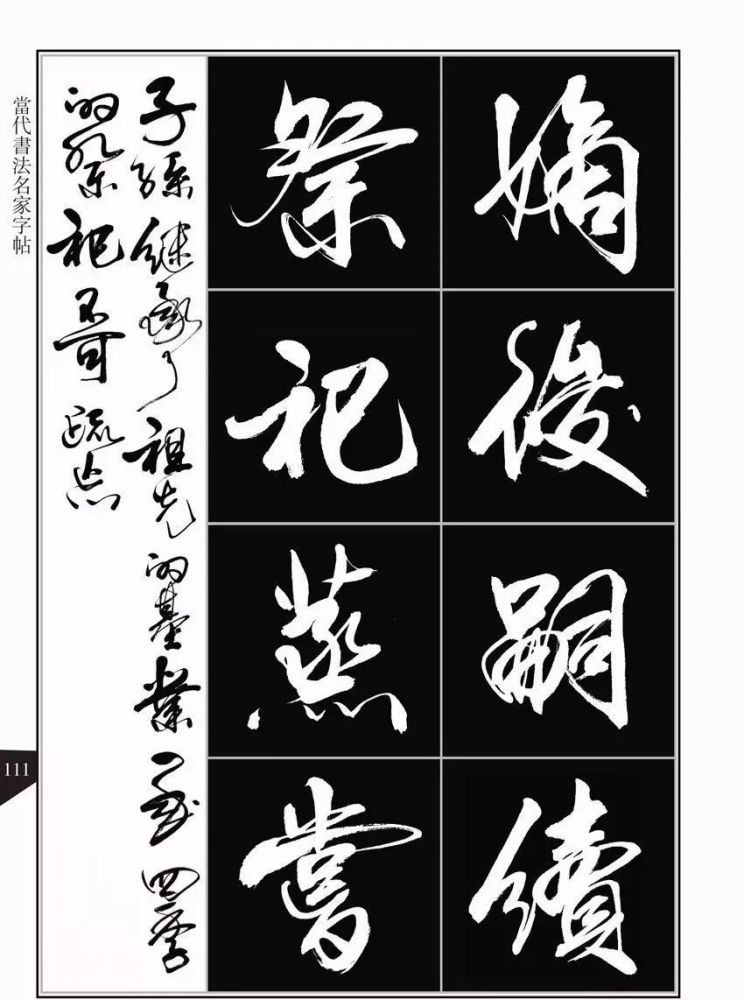 當代書法名家字帖
嫡後嗣續
祭祀蒸嘗
子孫継承了祖先的基業一年四季
的祭祀不可疏忘
111